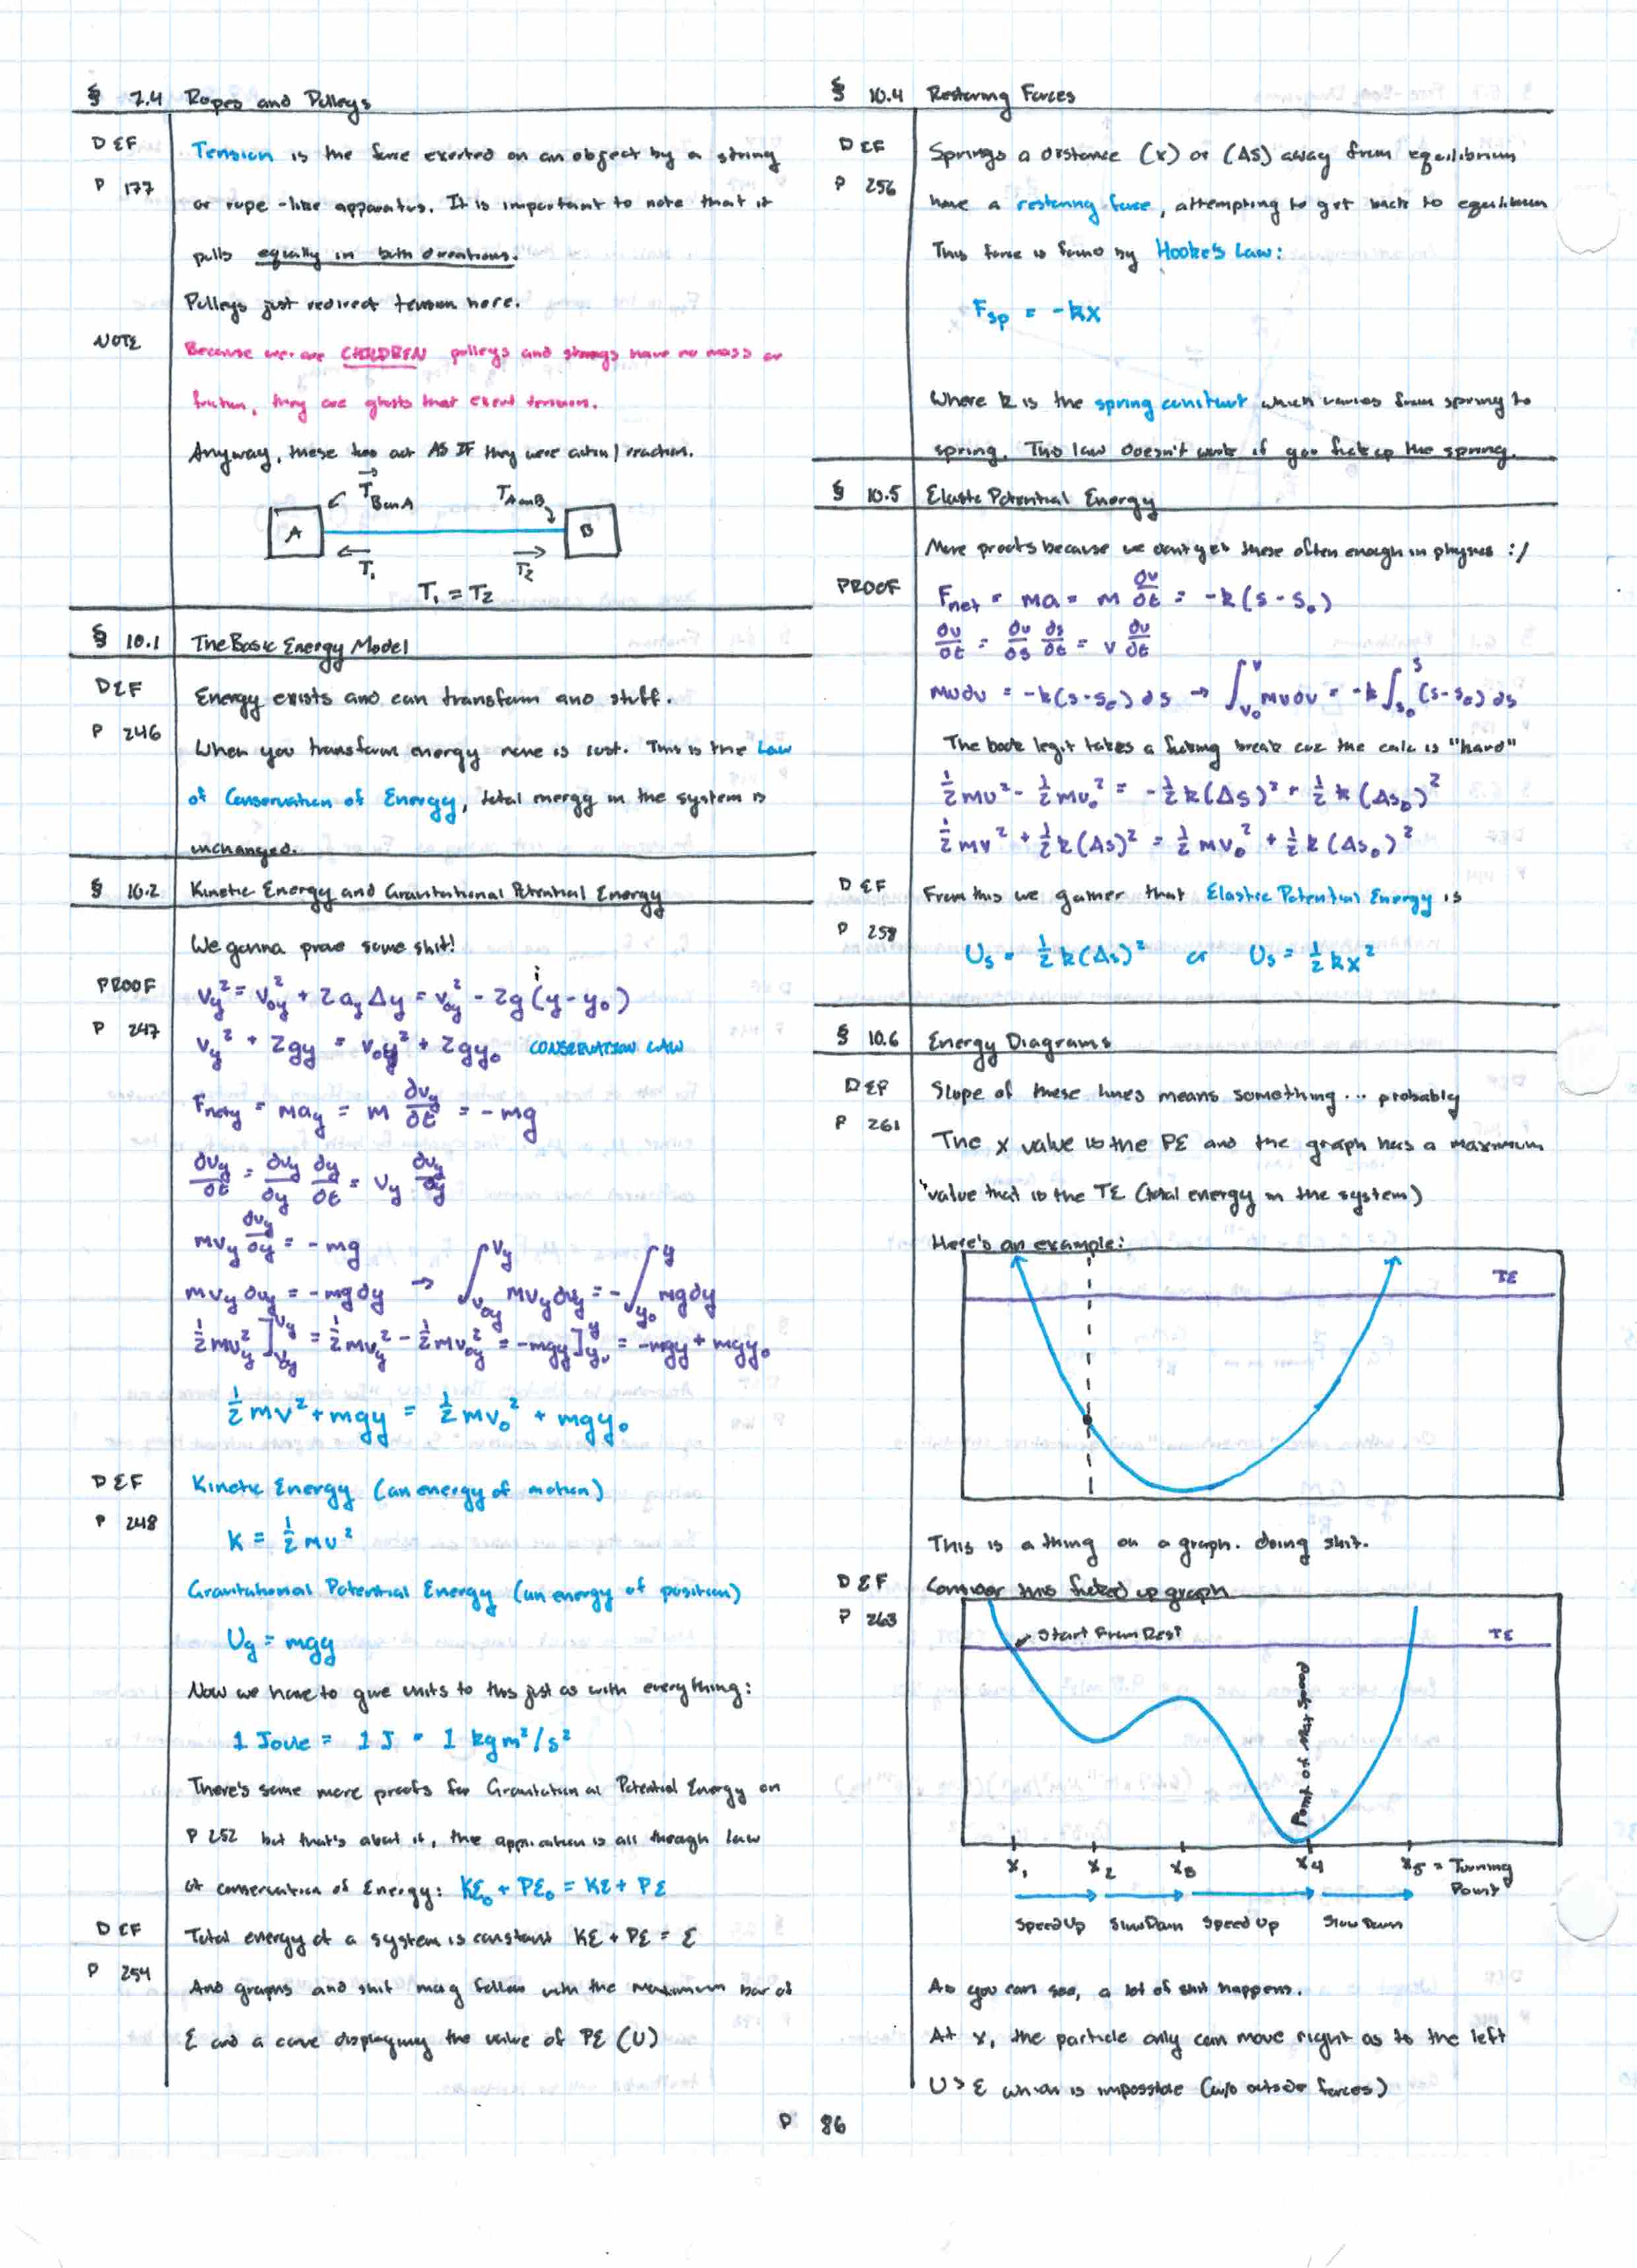 § 7.4 Ropes and Pulleys
DEF
P 177
Tension is the force exerted on an object by a string
or rope-like apparatus. It is important to note that it
pulls equally in both directions.
Pulleys just redirect tension here.
NOTE
Because we are CHILDREN pulleys and strings have no mass or
friction, they are ghosts that exert tension.
Anyway, these two act AS IF they were action/reaction.
T B on A
T A on B
A
B
T₁
T₂
T₁ = T₂
§ 10.1 The Basic Energy Model
DEF
P 246
Energy exists and can transform and stuff.
When you transform energy none is lost. This is the Law
of Conservation of Energy, total energy in the system is
unchanged.
§ 10.2 Kinetic Energy and Gravitational Potential Energy
We gonna prove some shit!
PROOF
P 247
v_y² = v_oy² + 2a_yΔy = v_oy² - 2g(y-y₀)
v_y² + 2gy = v_oy² + 2gy₀ CONSERVATION LAW
F_nety = ma_y = m ∂v_y/∂t = -mg
∂v_y/∂t = ∂v_y/∂y ∂y/∂t = v_y ∂v_y/∂y
mv_y ∂v_y/∂y = -mg
mv_y∂v_y = -mg∂y → ∫_{v_oy}^{v_y} mv_y∂v_y = -∫_{y₀}^{y} mg∂y
½mv_y²]_{v_oy}^{v_y} = ½mv_y² - ½mv_oy² = -mgy]_{y₀}^{y} = -mgy + mgy₀
½mv² + mgy = ½mv₀² + mgy₀
DEF
P 248
Kinetic Energy (an energy of motion)
K = ½mv²
Gravitational Potential Energy (an energy of position)
Ug = mgy
Now we have to give units to this just as with everything:
1 Joule = 1 J = 1 kg m²/s²
There's some more proofs for Gravitational Potential Energy on
P 252 but that's about it, the application is all through law
of conservation of Energy: KE₀ + PE₀ = KE + PE
DEF
P 254
Total energy of a system is constant KE + PE = E
And graphs and shit may follow with the maximum bar of
E and a curve displaying the value of PE (U)
§ 10.4 Restoring Forces
DEF
P 256
Springs a distance (x) or (Δs) away from equilibrium
have a restoring force, attempting to get back to equilibrium
This force is found by Hooke's Law:
F_sp = -kx
Where k is the spring constant which varies from spring to
spring. This law doesn't work if you fuck up the spring.
§ 10.5 Elastic Potential Energy
More proofs because we don't get these often enough in physics :/
PROOF
F_net = ma = m ∂v/∂t = -k(s-s₀)
∂v/∂t = ∂v/∂s ∂s/∂t = v ∂v/∂t
mv∂v = -k(s-s₀)∂s → ∫_{v₀}^{v} mv∂v = -k∫_{s₀}^{s} (s-s₀)∂s
The book legit takes a fucking break cuz the calc is "hard"
½mv² - ½mv₀² = -½k(Δs)² + ½k(Δs₀)²
½mv² + ½k(Δs)² = ½mv₀² + ½k(Δs₀)²
DEF
P 258
From this we gather that Elastic Potential Energy is
Us = ½k(Δs)² or Us = ½kx²
§ 10.6 Energy Diagrams
DEF
P 261
Slope of these lines means something... probably
The x value is the PE and the graph has a maximum
value that is the TE (total energy in the system)
Here's an example:
TE
This is a thing on a graph. doing shit.
DEF
P 263
Consider this fucked up graph
Start From Rest
TE
Point of Max Speed
x₁ x₂ x₃ x₄ x₅ = Turning
Point
Speed Up Slow Down Speed Up Slow Down
As you can see, a lot of shit happens.
At x₁ the particle only can move right as to the left
U > E which is impossible (w/o outside forces)
P 86